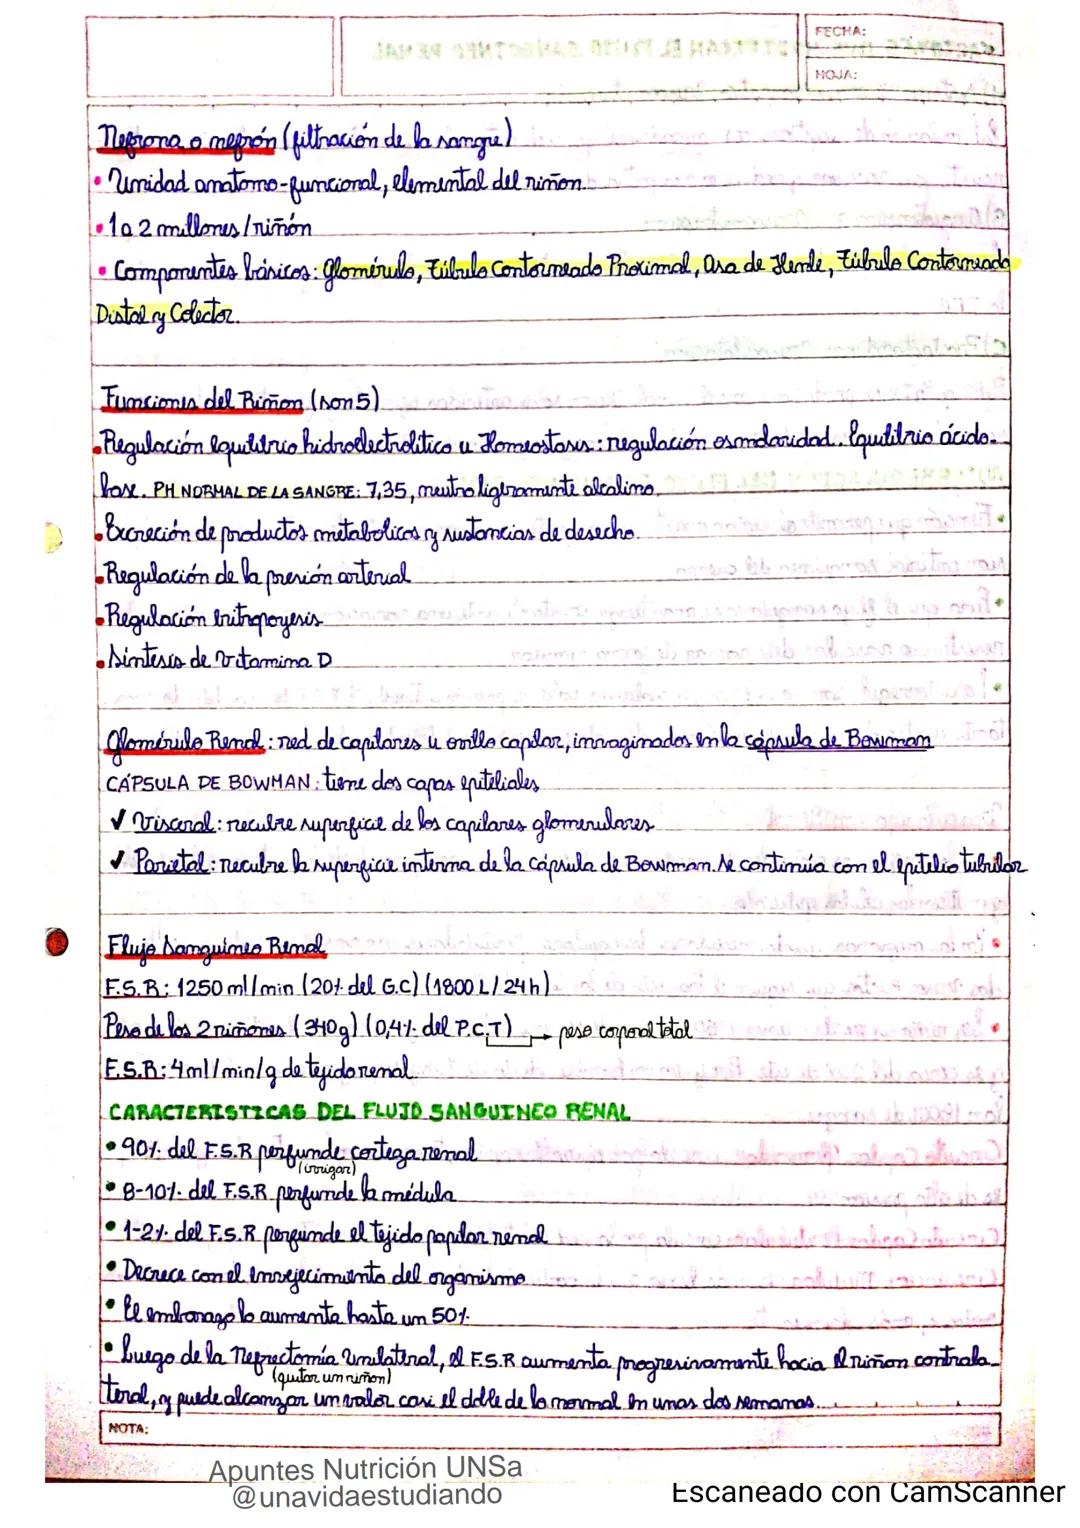 FECHA:
HOJA:
Nefrona o nefrón (filtración de la sangre)
• Unidad anatomo-funcional, elemental del riñon.
• 1 a 2 millones/riñón
• Componentes básicos: Glomérulo, Túbulo Contorneado Proximal, Asa de Henle, Túbulo Contorneado
Distal y Colector.
Funciones del Riñon (son 5)
• Regulación equilibrio hidroelectrolitico u Homeostasis: regulación osmolaridad. Equilibrio ácido-
base. PH NORMAL DE LA SANGRE: 7,35, neutro ligeramente alcalino.
• Excreción de productos metabolicos y sustancias de desecho.
• Regulación de la presión arterial
• Regulación eritropoyesis
• Síntesis de vitamina D
Glomérulo Renal: red de capilares u ovillo capilar, invaginados en la cápsula de Bowman
CÁPSULA DE BOWMAN: tiene dos capas epiteliales
✓ Visceral: recubre superficie de los capilares glomerulares
✓ Parietal: recubre la superficie interna de la cápsula de Bowman. Se continúa con el epitelio tubular
Flujo Sanguineo Renal
F.S.R: 1250 ml/min (20% del G.C) (1800 L/24h)
Peso de los 2 riñones (340g) (0,4% del P.C.T) → peso corporal total
F.S.R: 4ml/min/g de tejido renal
CARACTERISTICAS DEL FLUJO SANGUINEO RENAL
• 90% del F.S.R perfunde corteza renal
(irrigar)
• 8-10% del F.S.R perfunde la médula
• 1-2% del F.S.R perfunde el tejido papilar renal
• Decrece con el envejecimiento del organismo
• El embarazo lo aumenta hasta un 50%.
• Luego de la Nefrectomía Unilateral, el F.S.R aumenta progresivamente hacia el riñon contrala-
(quitar un riñon)
teral, y puede alcanzar un valor casi el doble de lo normal en unas dos semanas.
NOTA:
Apuntes Nutrición UNSa
@unavidaestudiando
Escaneado con CamScanner